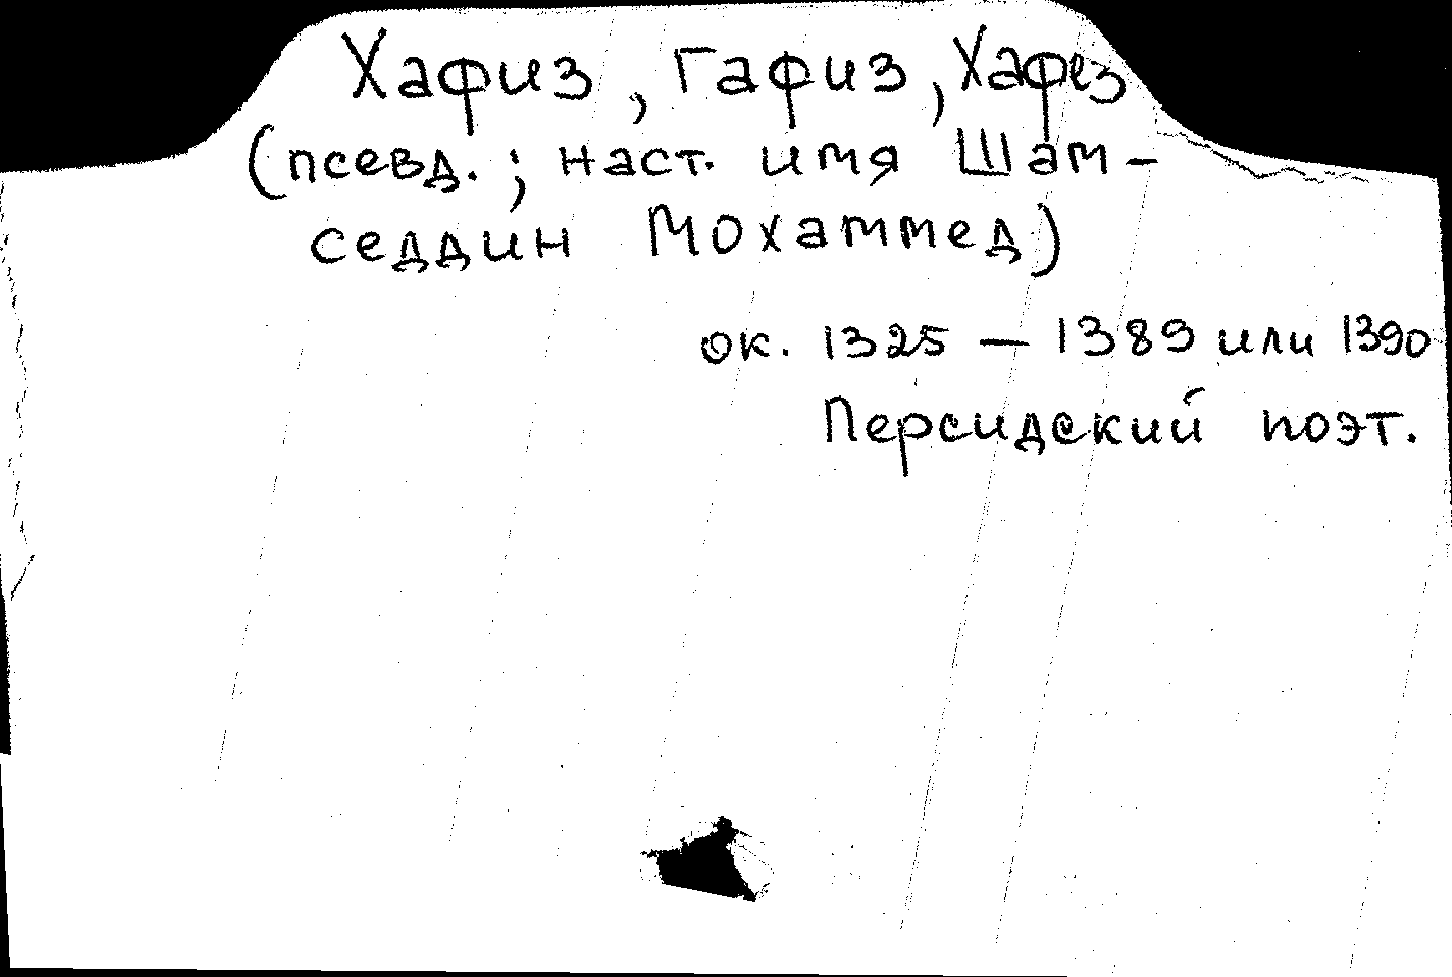 Хафиз, Гафиз, Хафез
(псевд.; наст. имя Шам-
седдин Мохаммед)
ок. 1325 — 1389 или 1390
Персидский поэт.